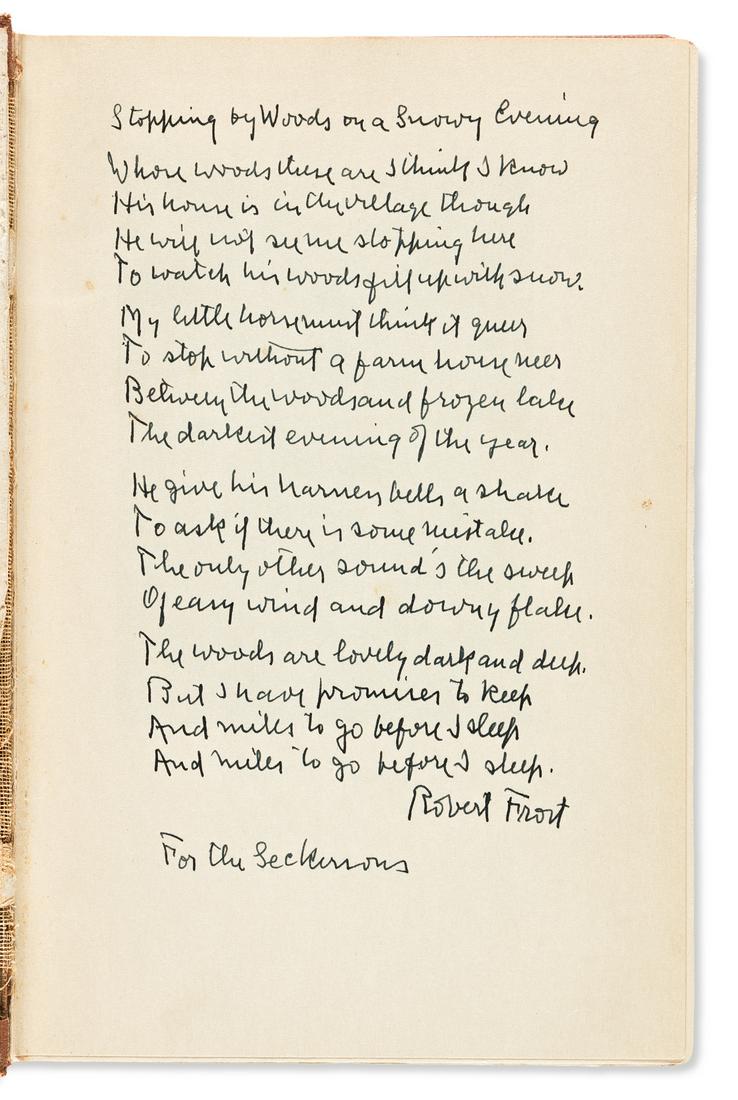 Stopping by Woods on a Snowy Evening
Whose woods these are I think I know
His house is in the village though
He will not see me stopping here
To watch his woods fill up with snow.
My little horse must think it queer
To stop without a farm house near
Between the woods and frozen lake
The darkest evening of the year.
He give his harness bells a shake
To ask if there is some mistake.
The only other sound's the sweep
Of easy wind and downy flake.
The woods are lovely dark and deep.
But I have promises to keep
And miles to go before I sleep
And miles to go before I sleep.
Robert Frost
For the Seckersons